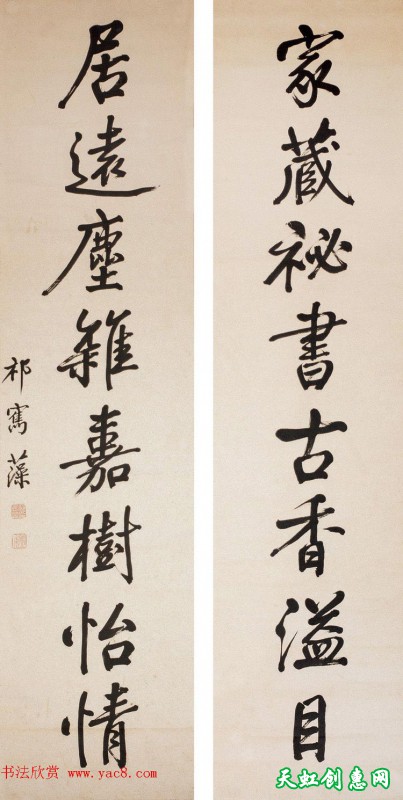 家藏祕書古香溢目
居遠塵雜嘉樹怡情
祁寯藻
书法欣赏 www.yac8.com
天虹创惠网